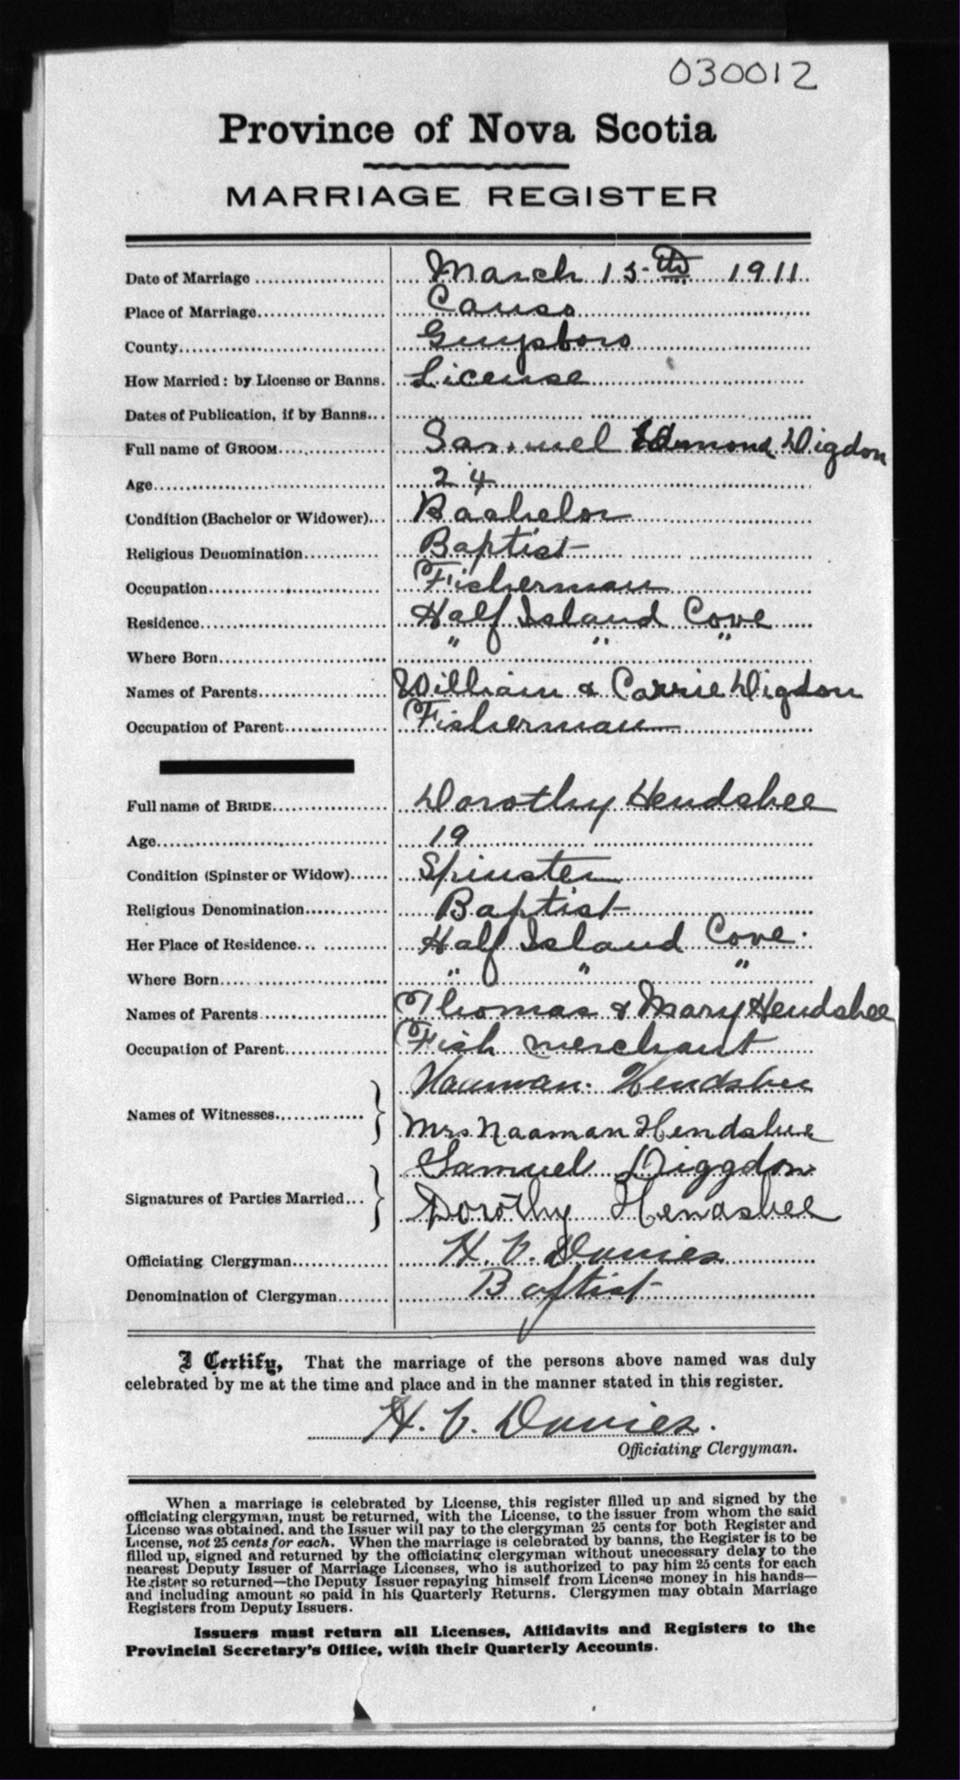 030012
Province of Nova Scotia
MARRIAGE REGISTER
Date of Marriage March 15th 1911
Place of Marriage Canso
County Guysboro
How Married: by License or Banns. License
Dates of Publication, if by Banns
Full name of GROOM Samuel Edmond Digdon
Age 24
Condition (Bachelor or Widower) Bachelor
Religious Denomination Baptist
Occupation Fisherman
Residence Half Island Cove
Where Born " " "
Names of Parents William & Carrie Digdon
Occupation of Parent Fisherman
Full name of BRIDE Dorothy Hendsbee
Age 19
Condition (Spinster or Widow) Spinster
Religious Denomination Baptist
Her Place of Residence Half Island Cove.
Where Born " " "
Names of Parents Thomas & Mary Hendsbee
Occupation of Parent Fish merchant
Names of Witnesses Naaman Hendsbee
Mrs Naaman Hendsbee
Signatures of Parties Married Samuel Diggdon
Dorothy Hendsbee
Officiating Clergyman H. V. Davies
Denomination of Clergyman Baptist
I Certify, That the marriage of the persons above named was duly
celebrated by me at the time and place and in the manner stated in this register.
H. V. Davies.
Officiating Clergyman.
When a marriage is celebrated by License, this register filled up and signed by the
officiating clergyman, must be returned, with the License, to the issuer from whom the said
License was obtained, and the Issuer will pay to the clergyman 25 cents for both Register and
License, not 25 cents for each. When the marriage is celebrated by banns, the Register is to be
filled up, signed and returned by the officiating clergyman without unecessary delay to the
nearest Deputy Issuer of Marriage Licenses, who is authorized to pay him 25 cents for each
Register so returned—the Deputy Issuer repaying himself from License money in his hands—
and including amount so paid in his Quarterly Returns. Clergymen may obtain Marriage
Registers from Deputy Issuers.
Issuers must return all Licenses, Affidavits and Registers to the
Provincial Secretary's Office, with their Quarterly Accounts.